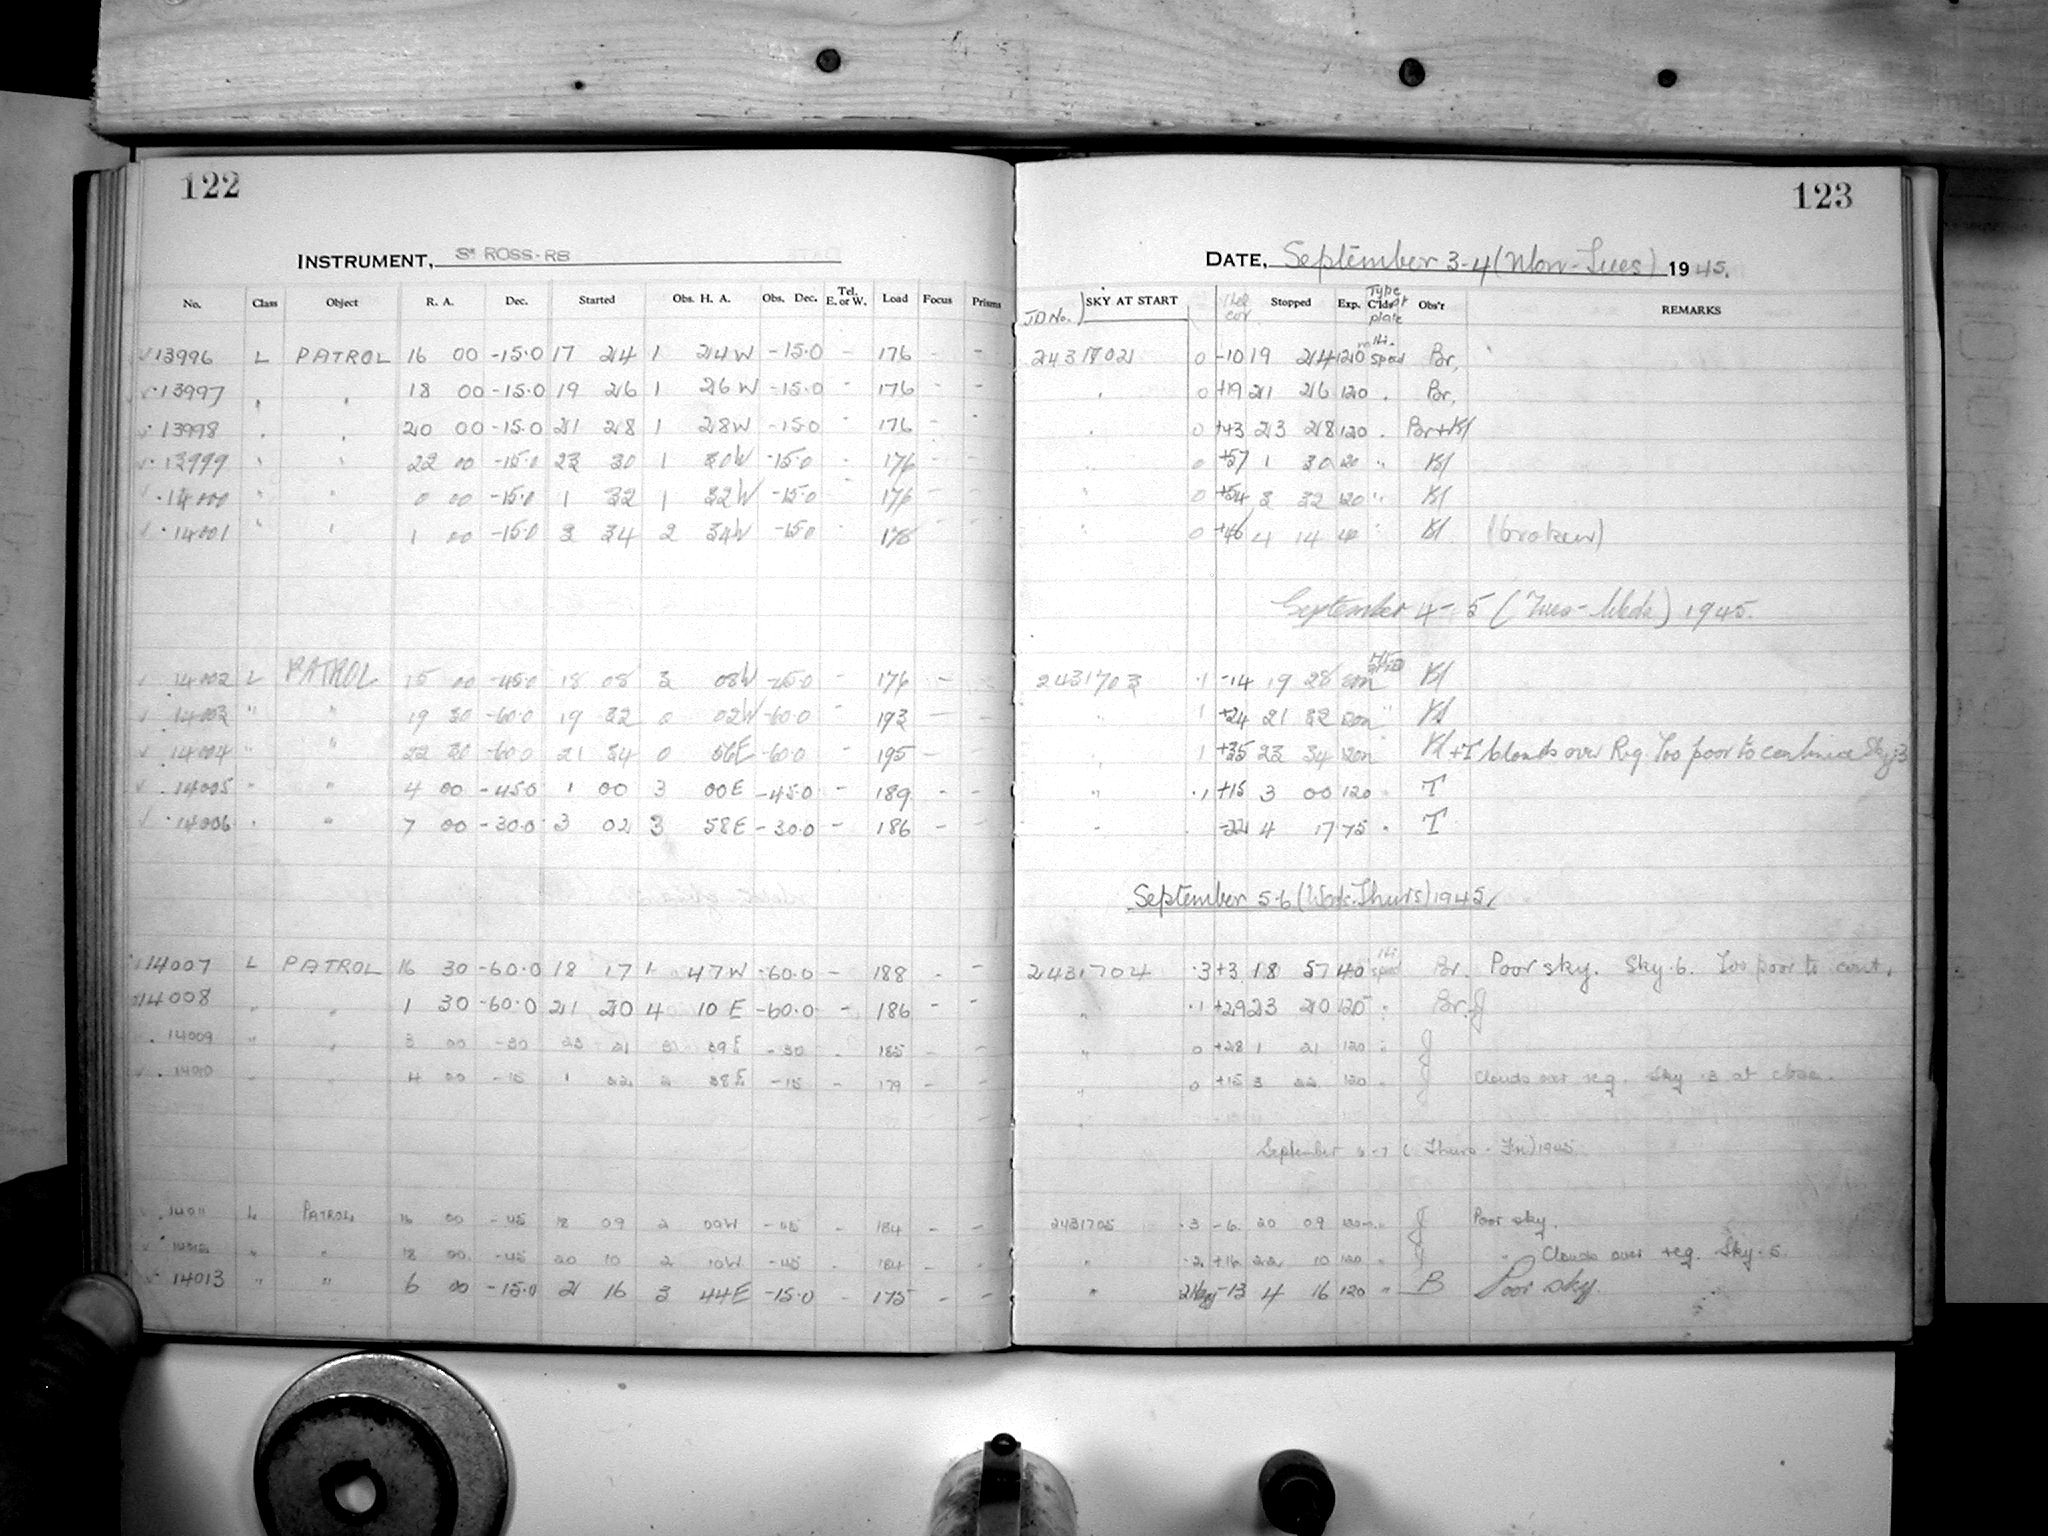 122
INSTRUMENT, 3" ROSS-RB
No. Class Object R. A. Dec. Started Obs. H. A. Obs. Dec. Tel. E. or W. Load Focus Prisms
13996 L PATROL 16 00 -15.0 17 24 1 24W -15.0 - 176 - -
13997 " " 18 00 -15.0 19 26 1 26W -15.0 - 176 - -
13998 " " 20 00 -15.0 21 28 1 28W -15.0 - 176 - -
13999 " " 22 00 -15.0 23 30 1 30W -15.0 - 176 - -
14000 " " 0 00 -15.0 1 32 1 32W -15.0 - 176 - -
14001 " " 1 00 -15.0 3 34 2 34W -15.0 - 178 - -
14002 L PATROL 15 00 -45.0 18 08 3 08W -45.0 - 176 - -
14003 " " 19 30 -60.0 19 32 0 02W -60.0 - 193 - -
14004 " " 22 30 -60.0 21 34 0 56E -60.0 - 195 - -
14005 " " 4 00 -45.0 1 00 3 00E -45.0 - 189 - -
14006 " " 7 00 -30.0 3 02 3 58E -30.0 - 186 - -
14007 L PATROL 16 30 -60.0 18 17 1 47W -60.0 - 188 - -
14008 " " 1 30 -60.0 21 20 4 10E -60.0 - 186 - -
14009 " " 3 00 -30 23 21 3 39E -30 - 185 - -
14010 " " 4 00 -15 1 22 2 38E -15 - 179 - -
14011 L PATROL 16 00 -45 18 09 2 09W -45 - 184 - -
14012 " " 18 00 -45 20 10 2 10W -45 - 184 - -
14013 " " 6 00 -15.0 2 16 3 44E -15.0 - 175 - -
123
DATE, September 3-4 (Mon-Tues) 1945.
JD No. SKY AT START Stopped Exp. Type of plate C'lds Obs'r REMARKS
2431702 0 -10 19 24 120 Hi-speed Br.
" 0 +19 21 26 120 " Br.
" 0 +43 23 28 120 " Br+Kl
" 0 +57 1 30 120 " Kl
" 0 +54 3 32 120 " Kl
" 0 +46 4 14 40 " Kl (broken)
September 4-5 (Tues-Weds) 1945.
2431703 .1 -14 19 28 Kl
" 1 +24 21 32 120m " Kl
" 1 +35 23 34 120m Kl+T Clouds over Reg. Too poor to continue Sky .3
" .1 +15 3 00 120 " T
" -22 4 17 75 " T
September 5-6 (Weds-Thurs) 1945.
2431704 .3 +3 18 57 40 Hi speed Br. Poor sky. Sky .6. Too poor to cont.
" .1 +29 23 20 120 " Br. J
" 0 +28 1 21 120 " J
" 0 +15 3 22 120 " J Clouds over reg. Sky .3 at close.
September 6-7 (Thurs-Fri) 1945
2431705 .3 -6 20 09 120m " J Poor sky.
" .2 +16 22 10 120 " J " Clouds over reg. Sky .5.
" -13 4 16 120 " B Poor sky.